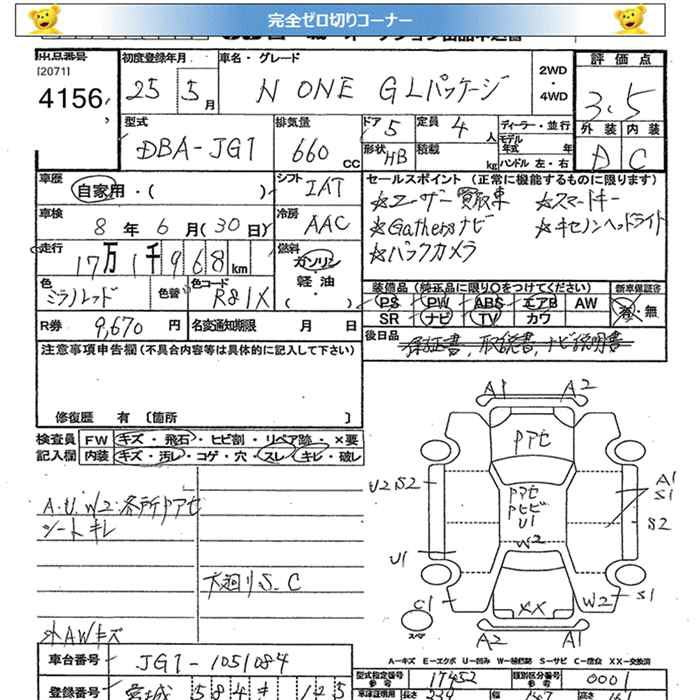 完全ゼロ切りコーナー
出品番号 初度登録年月 車名・グレード 評価点
[2071] 25 5月 N ONE GLパッケージ 2WD・4WD 3.5
4156
型式 排気量 ドア 5 定員 4人 ディーラー・並行 外装 内装
DBA-JG1 660 CC 形状 HB 積載 kg モデル年式 年 ハンドル 左・右 D C
車歴 自家用・( ) シフト IAT セールスポイント (正常に機能するものに限ります)
☆ユーザー買取車 ☆スマートキー
車検 8年6月(30日) 冷房 AAC ☆Gathersナビ ☆キセノンヘッドライト
走行 17万1千968km 燃料 ガソリン・軽油・( ) ☆バックカメラ
色 ミラノレッド 色替 色コード R81X 装備品 (純正品に限り○をつけてください) 新車保証書
PS PW ABS エアB AW 有・無
R券 9,670円 名変通知期限 月 日 SR ナビ TV カワ
後日品 保証書、取説書、ナビ説明書
注意事項申告欄 (不具合内容等は具体的に記入して下さい)
修復歴 有 〔箇所 〕
検査員 FW キズ・飛石・ヒビ割・リペア跡・×要
記入欄 内装 キズ・汚レ・コゲ・穴・スレ・キレ・破レ
A.U.W2.各所Pアセ
シートキレ
大廻りS.C
外AWキズ
A1 A2
Pアセ
U2 S2 Pアセ A1
PヒビS1
U1 S2
W2
U1
C1 XX W2 S1
スペア A2 A1
A-キズ E-エクボ U-凹み W-補修跡 S-サビ C-腐食 XX-交換済
車台番号 JG1-1051084 型式指定番号 17452 類別区分番号 0001
登録番号 宮城 584 125 長さ 339 幅 147 高さ 161